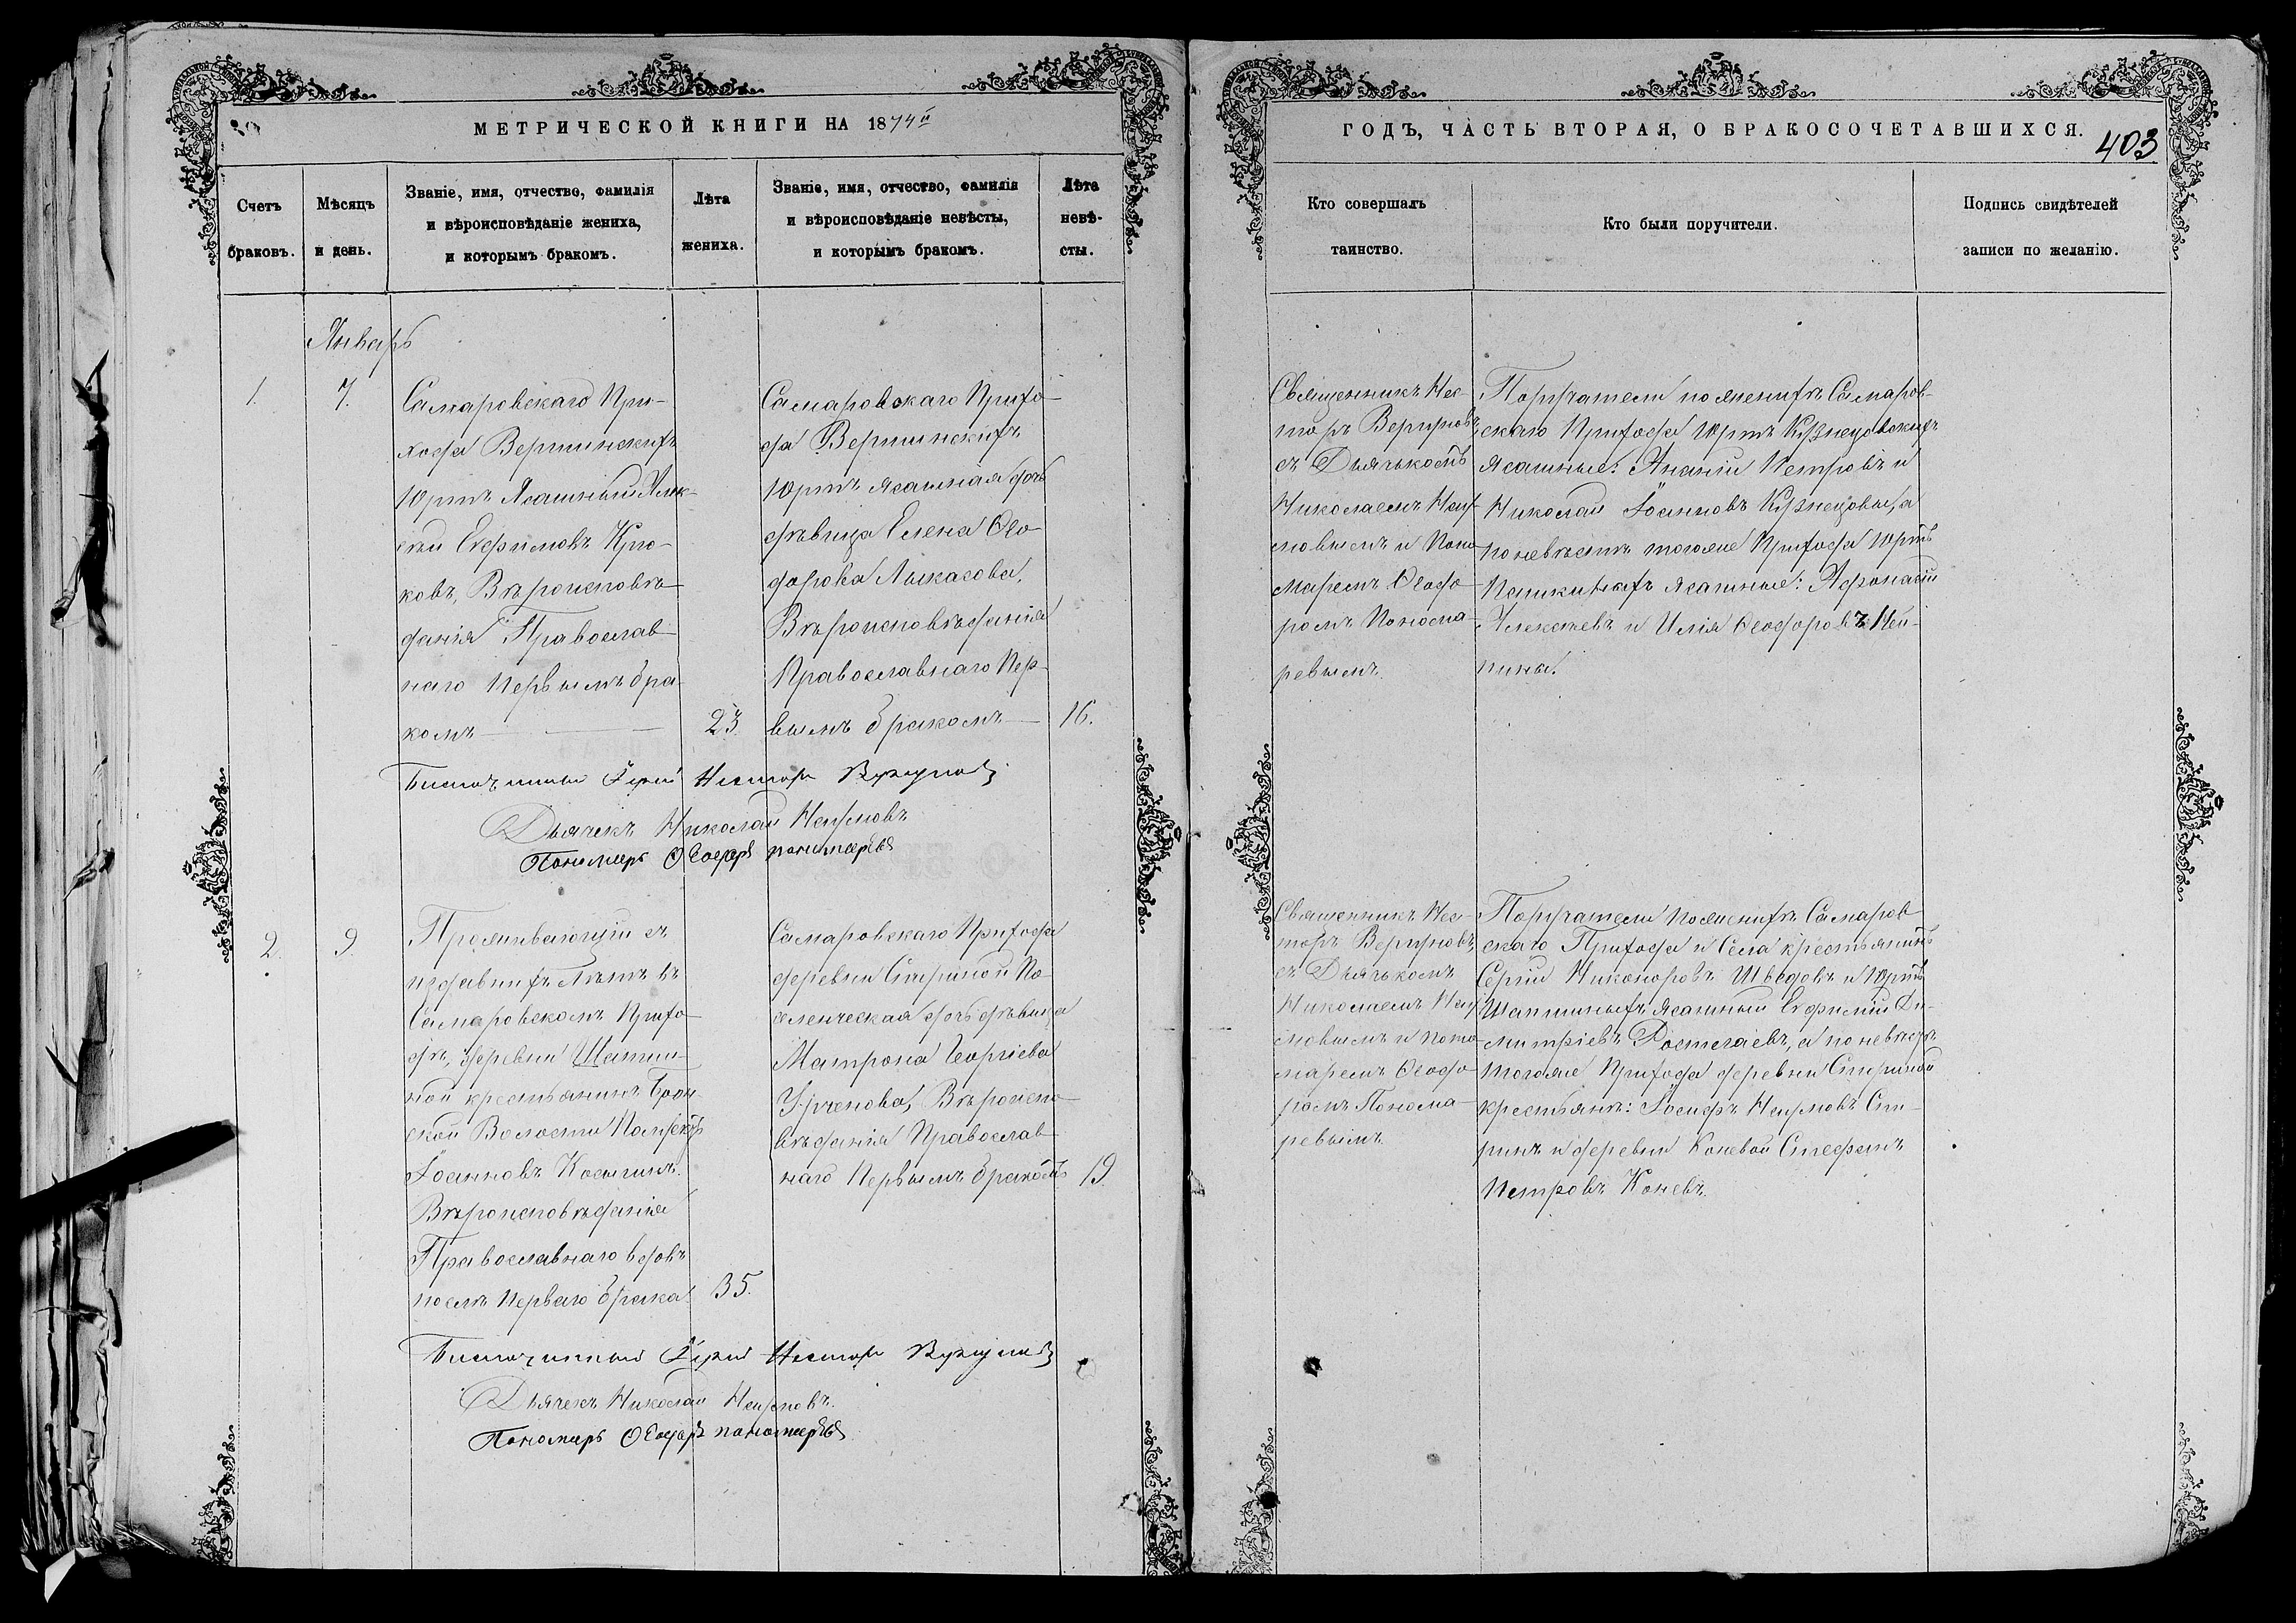 МЕТРИЧЕСКОЙ КНИГИ НА 1874й
ГОДЪ, ЧАСТЬ ВТОРАЯ, О БРАКОСОЧЕТАВШИХСЯ.
403
Счетъ
браковъ.
Мѣсяцъ
и день.
Званіе, имя, отчество, фамилія
и вѣроисповѣданіе жениха,
и которымъ бракомъ.
Лѣта
жениха.
Званіе, имя, отчество, фамилія
и вѣроисповѣданіе невѣсты,
и которымъ бракомъ.
Лѣта
невѣ-
сты.
Кто совершалъ
таинство.
Кто были поручители.
Подпись свидѣтелей
записи по желанію.
Январь
1.
7.
Самаровскаго При-
хода Вершинскихъ
Юртъ Ясашный Алек-
сѣй Евфимовъ Крю-
ковъ, Вѣроисповѣ-
данія Православ-
наго Первымъ бра-
комъ
23.
Самаровскаго Прихо-
да Вершинскихъ
Юртъ ясашная дочь
дѣвица Елена Ѳео-
дорова Лыкасова,
Вѣроисповѣданія
Православнаго Пер-
вымъ бракомъ
16.
Священникъ Нес-
торъ Вергуновъ,
съ Дьячькомъ
Николаемъ Нау-
мовымъ и Поно-
маремъ Ѳеодо-
ромъ Понома-
ревымъ.
Поручатели по женихѣ Самаров-
скаго Прихода Юртъ Кузнецовскихъ
ясашные: Ананій Петровъ и
Николай Іоанновъ Кузнецовы, а
по невѣстѣ тогоже Прихода Юртъ
ясашные: Афонасій
Алексѣевъ и Илія Ѳеодоровъ Ней-
пины.
Благочинный Іерей Несторъ Вергуновъ
Дьячекъ Николай Наумовъ
Пономарь Ѳеодоръ Пономаревъ
2.
9.
Проживающій съ
издавнихъ Лѣтъ въ
Самаровскомъ Прихо-
дѣ, деревни Шапши-
ной крестьянинъ
Волости
Іоанновъ Косыгинъ
Вѣроисповѣданія
Православнаго вдовъ
послѣ перваго брака
35.
Самаровскаго Прихода
деревни Спириной По-
селенческая дочь дѣвица
Матрона Георгіева
Вѣроиспо-
вѣданія Православ-
наго Первымъ бракомъ
19.
Священникъ Нес-
торъ Вергуновъ,
съ Дьячькомъ
Николаемъ Нау-
мовымъ и Поно-
маремъ Ѳеодо-
ромъ Понома-
ревымъ.
Поручатели по женихѣ Самаров-
скаго Прихода и Села крестьянинъ
Сергій Никоноровъ Шведовъ и Юртъ
Шапшиныхъ Ясашный Евфимій Ди-
митріевъ а по невѣстѣ
тогоже Прихода деревни Спириной
крестьянѣ: Іосифъ Наумовъ Спи-
ринъ и деревни Коневой Стефанъ
Петровъ Коневъ.
Благочинный Іерей Несторъ Вергуновъ
Дьячекъ Николай Наумовъ.
Пономарь Ѳеодоръ Пономаревъ